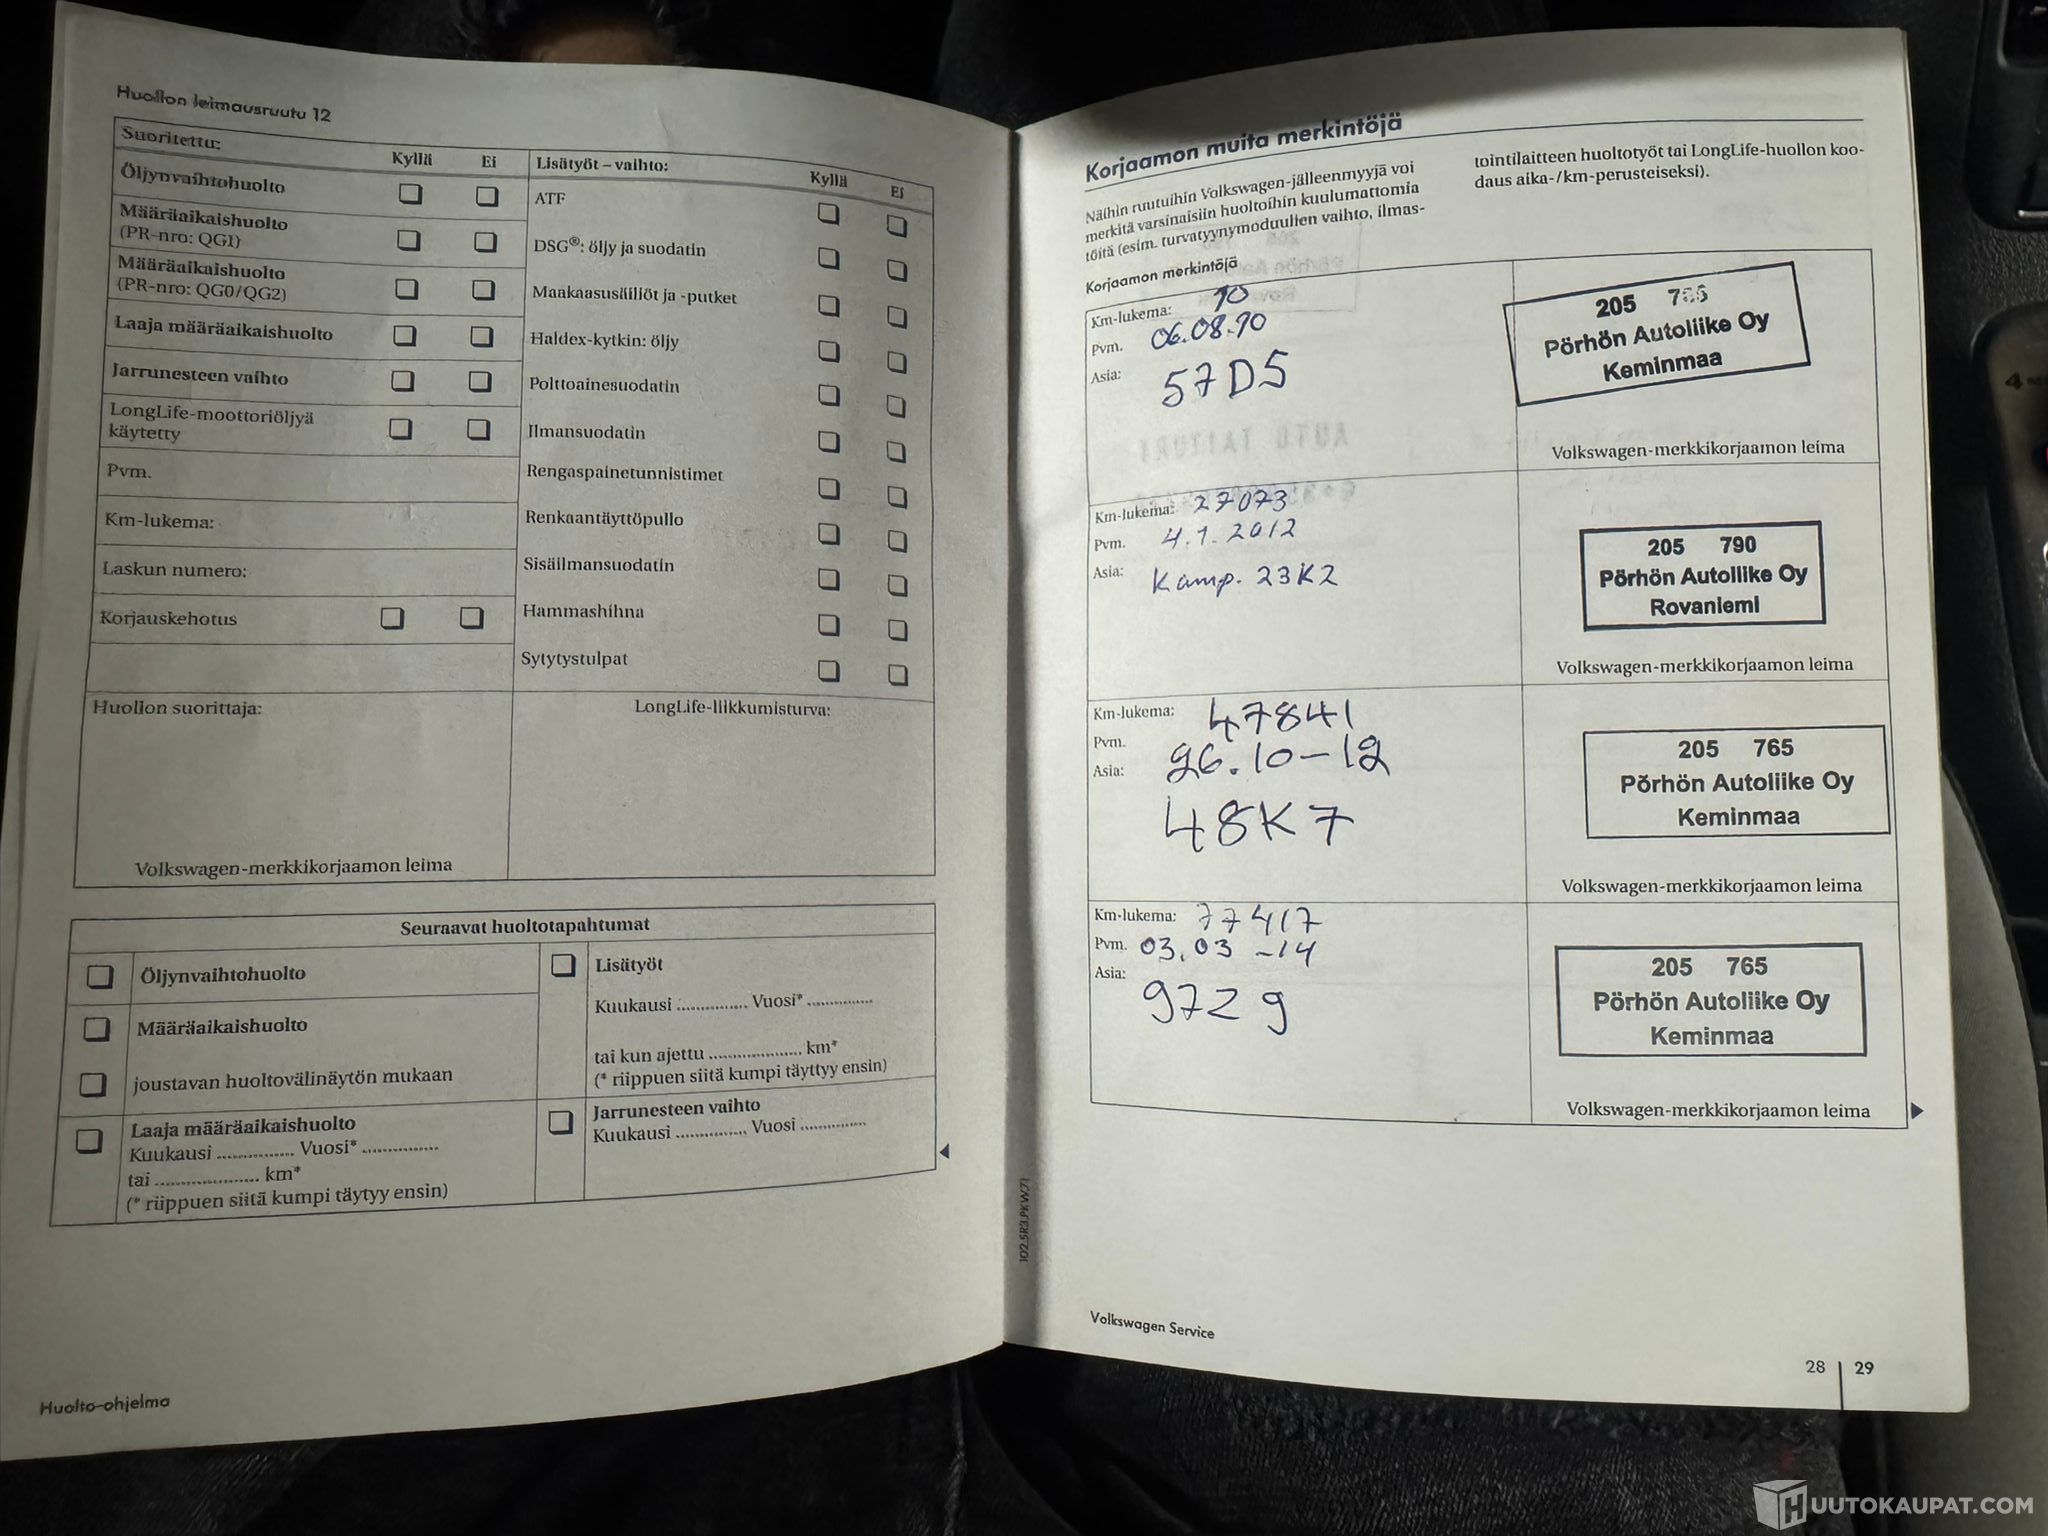 Huollon leimausruutu 12
Suoritettu:
Kyllä Ei
Öljynvaihtohuolto
Määräaikaishuolto
(PR-nro: QG1)
Määräaikaishuolto
(PR-nro: QG0/QG2)
Laaja määräaikaishuolto
Jarrunesteen vaihto
LongLife-moottoriöljyä
käytetty
Pvm.
Km-lukema:
Laskun numero:
Korjauskehotus
Lisätyöt – vaihto:
Kyllä Ei
ATF
DSG®: öljy ja suodatin
Maakaasusäiliöt ja -putket
Haldex-kytkin: öljy
Polttoainesuodatin
Ilmansuodatin
Rengaspainetunnistimet
Renkaantäyttöpullo
Sisäilmansuodatin
Hammashihna
Sytytystulpat
Huollon suorittaja:
Volkswagen-merkkikorjaamon leima
LongLife-liikkumisturva:
Seuraavat huoltotapahtumat
Öljynvaihtohuolto
Määräaikaishuolto
joustavan huoltovälinäytön mukaan
Laaja määräaikaishuolto
Kuukausi .............. Vuosi* ..............
tai .................... km*
(* riippuen siitä kumpi täytyy ensin)
Lisätyöt
Kuukausi .............. Vuosi* ..............
tai kun ajettu .................... km*
(* riippuen siitä kumpi täyttyy ensin)
Jarrunesteen vaihto
Kuukausi .............. Vuosi ..............
Huolto-ohjelma
Korjaamon muita merkintöjä
Näihin ruutuihin Volkswagen-jälleenmyyjä voi
merkitä varsinaisiin huoltoihin kuulumattomia
töitä (esim. turvatyynymoduulien vaihto, ilmas-
tointilaitteen huoltotyöt tai LongLife-huollon koo-
daus aika-/km-perusteiseksi).
Korjaamon merkintöjä
Km-lukema: 10
Pvm. 06.08.10
Asia: 57D5
205 765
Pörhön Autoliike Oy
Keminmaa
Volkswagen-merkkikorjaamon leima
Km-lukema: 27073
Pvm. 4.1.2012
Asia: Kamp. 23K2
205 790
Pörhön Autoliike Oy
Rovaniemi
Volkswagen-merkkikorjaamon leima
Km-lukema: 47841
Pvm. 26.10-12
Asia: 48K7
205 765
Pörhön Autoliike Oy
Keminmaa
Volkswagen-merkkikorjaamon leima
Km-lukema: 77417
Pvm. 03.03 -14
Asia: 97Z9
205 765
Pörhön Autoliike Oy
Keminmaa
Volkswagen-merkkikorjaamon leima
102.5R3.PKW.71
Volkswagen Service
28 | 29
HUUTOKAUPAT.COM